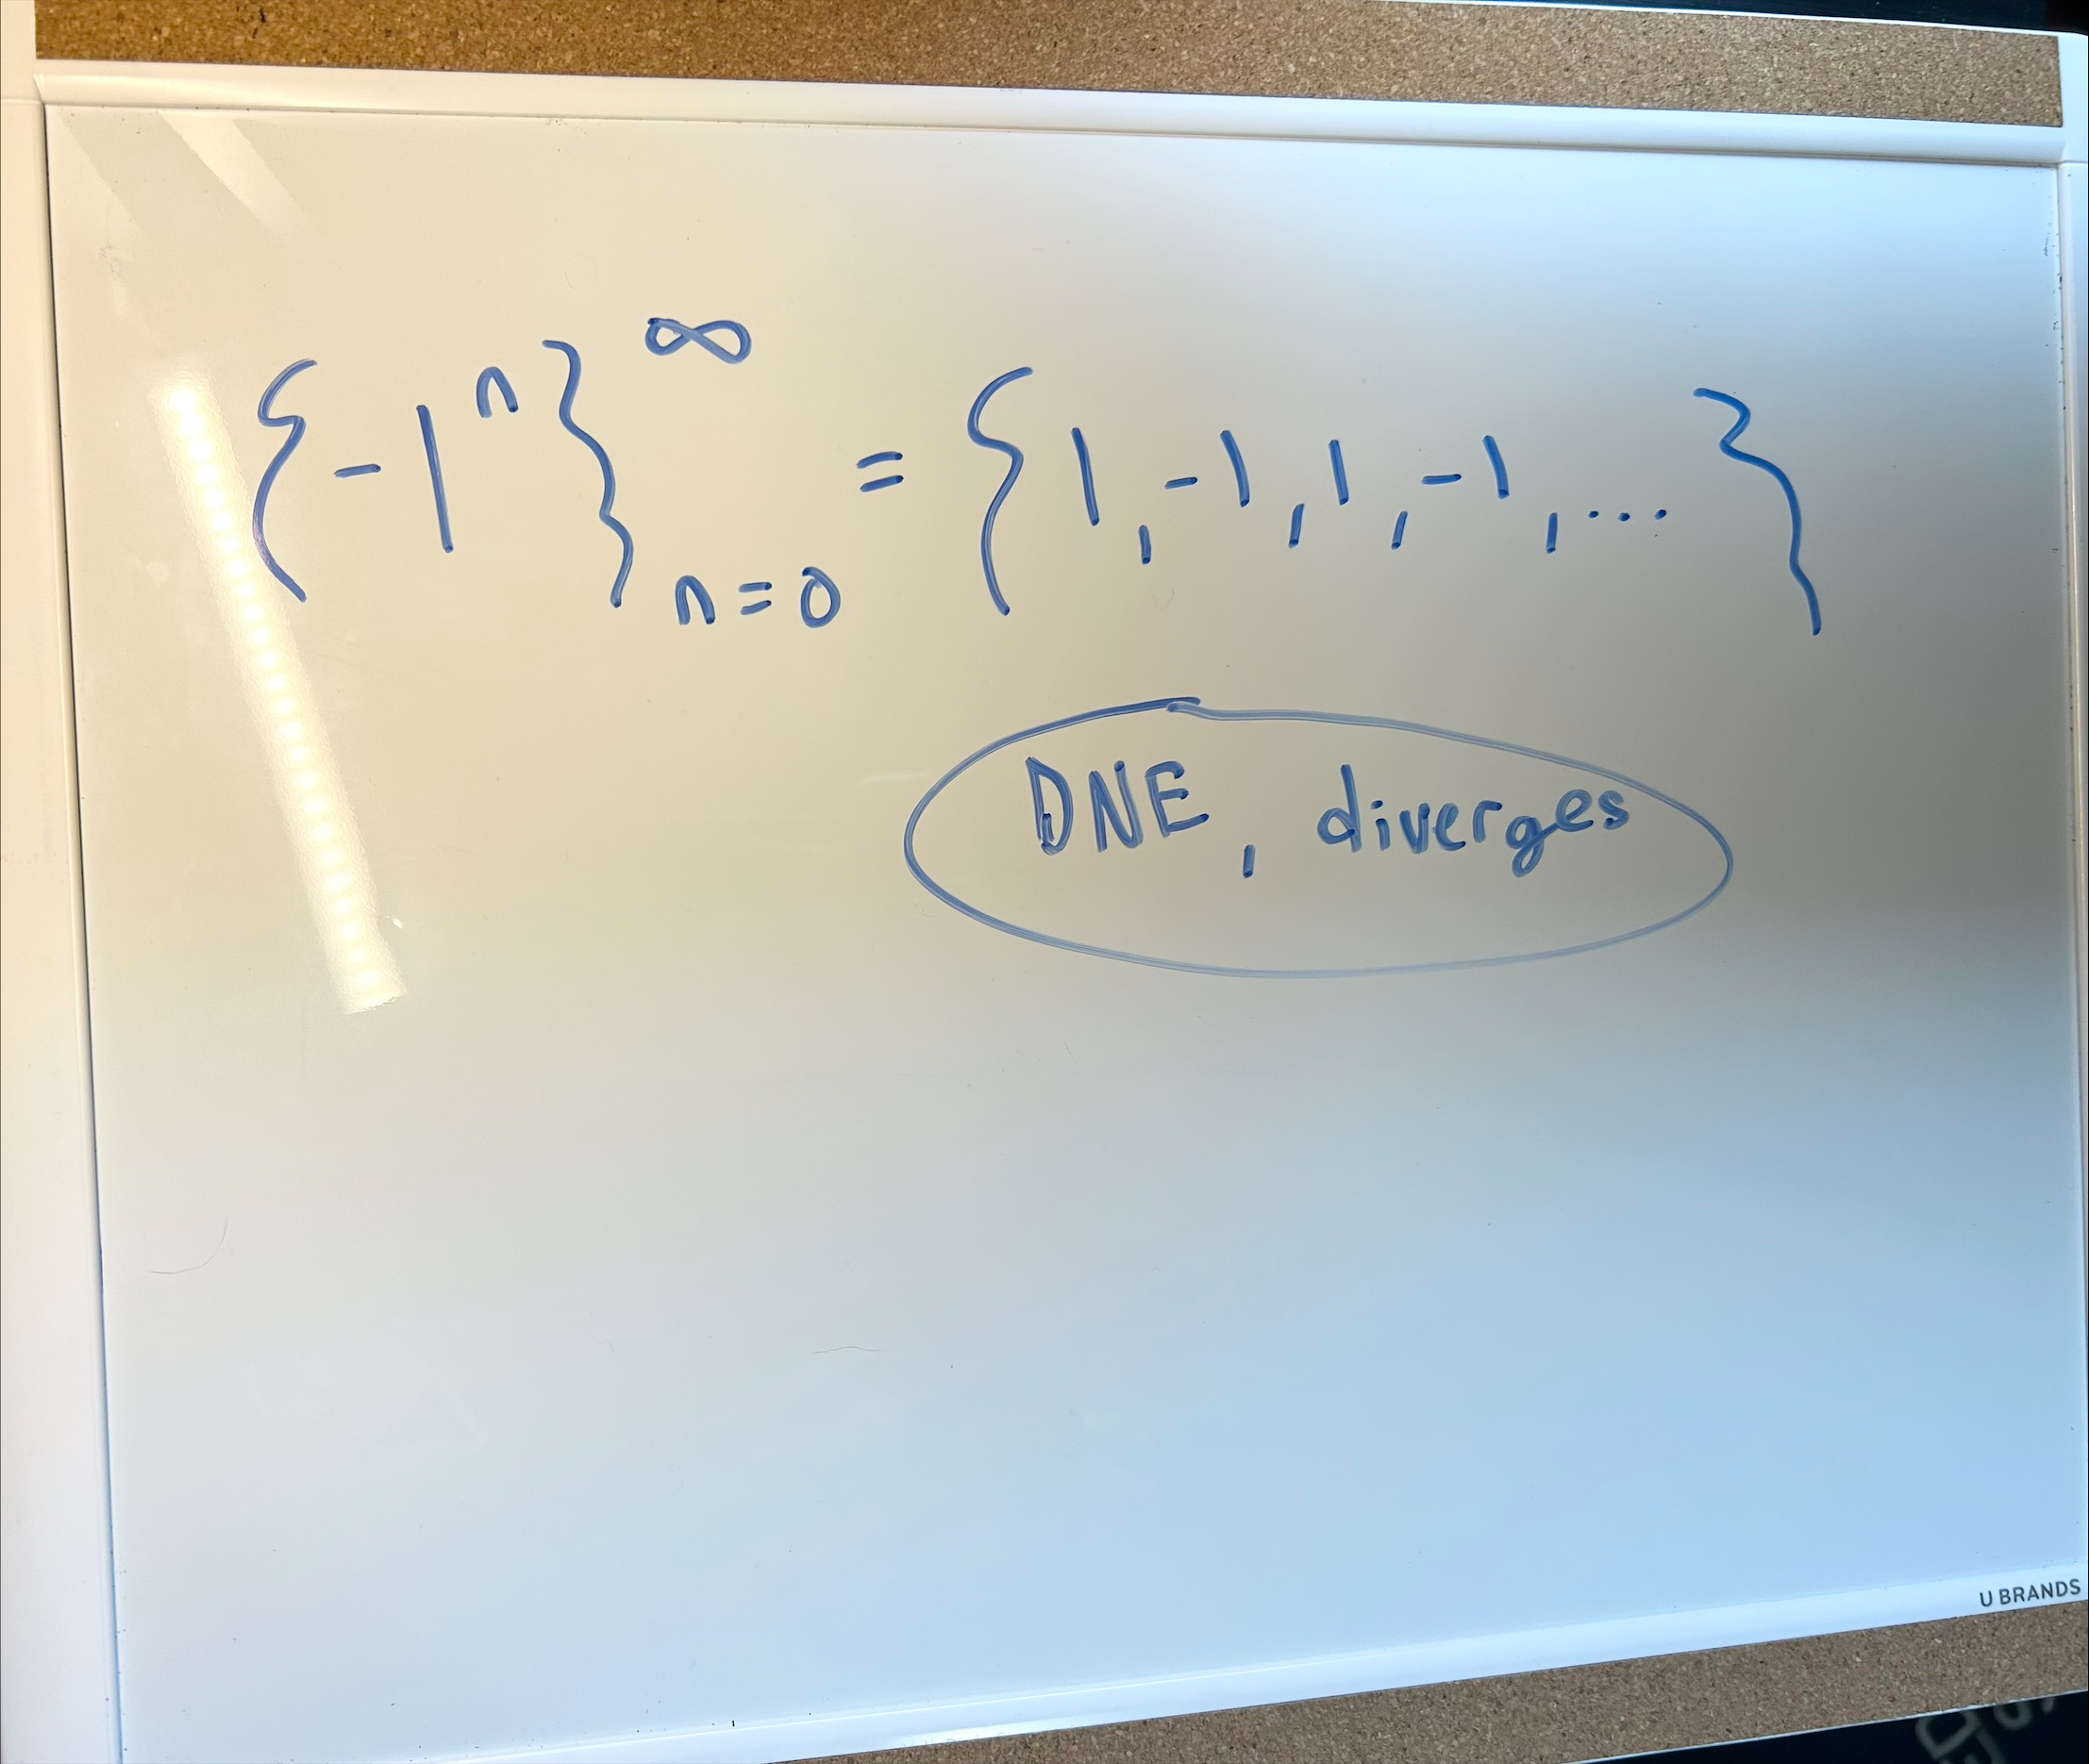 {-1^n}^∞_{n=0} = {1, -1, 1, -1, ...}
DNE, diverges
U BRANDS